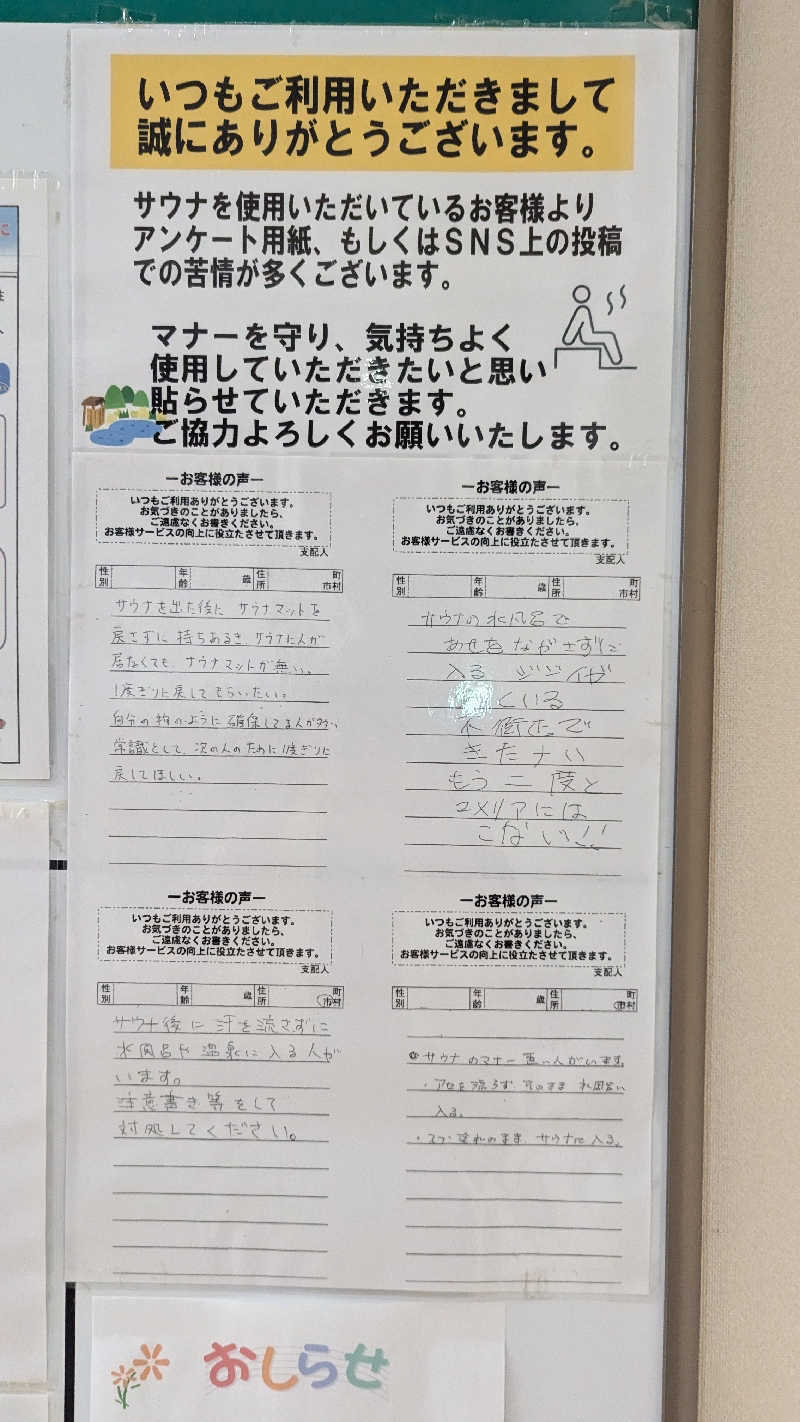 いつもご利用いただきまして
誠にありがとうございます。
サウナを使用いただいているお客様より
アンケート用紙、もしくはSNS上の投稿
での苦情が多くございます。
マナーを守り、気持ちよく
使用していただきたいと思い
貼らせていただきます。
ご協力よろしくお願いいたします。
ーお客様の声ー
いつもご利用ありがとうございます。
お気づきのことがありましたら、
ご遠慮なくお書きください。
お客様サービスの向上に役立たせて頂きます。
支配人
性別 年齢 歳 住所 町市村
サウナを出た後に サウナマットを
戻さずに 持ちあるき サウナに人が
居なくても、サウナマットが無い。
1度ぎりに戻してもらいたい。
自分の物のように確保してる人が多い、
常識として、次の人のために1度ぎりに
戻してほしい。
ーお客様の声ー
いつもご利用ありがとうございます。
お気づきのことがありましたら、
ご遠慮なくお書きください。
お客様サービスの向上に役立たせて頂きます。
支配人
性別 年齢 歳 住所 町市村
サウナの水風呂で
あせをながさずに
入る ジジイが
いる
不衛生で
きたナい
もう二度と
ユメリアには
こない!!
ーお客様の声ー
いつもご利用ありがとうございます。
お気づきのことがありましたら、
ご遠慮なくお書きください。
お客様サービスの向上に役立たせて頂きます。
支配人
性別 年齢 歳 住所 町市村
サウナ後に 汗を流さずに
水風呂や 温泉に 入る人が
います。
注意書き等をして
対処してください。
ーお客様の声ー
いつもご利用ありがとうございます。
お気づきのことがありましたら、
ご遠慮なくお書きください。
お客様サービスの向上に役立たせて頂きます。
支配人
性別 年齢 歳 住所 町市村
サウナのマナー悪い人がいます。
・アセを流さず そのまま 水風呂に
入る。
のまま サウナに入る。
おしらせ